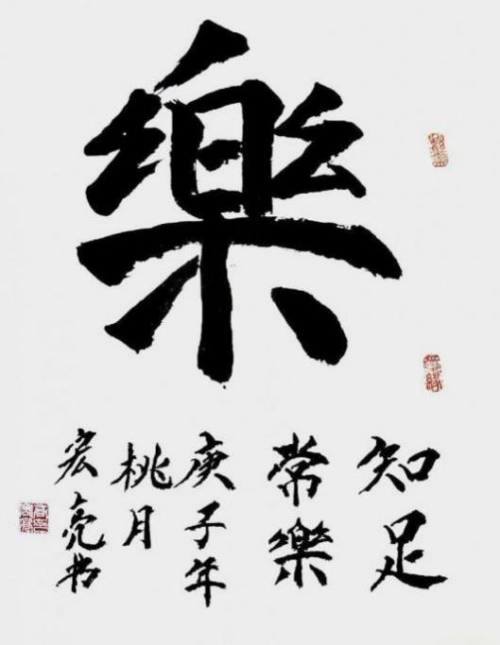 樂
知足
常樂
庚子年
桃月
宏亮书